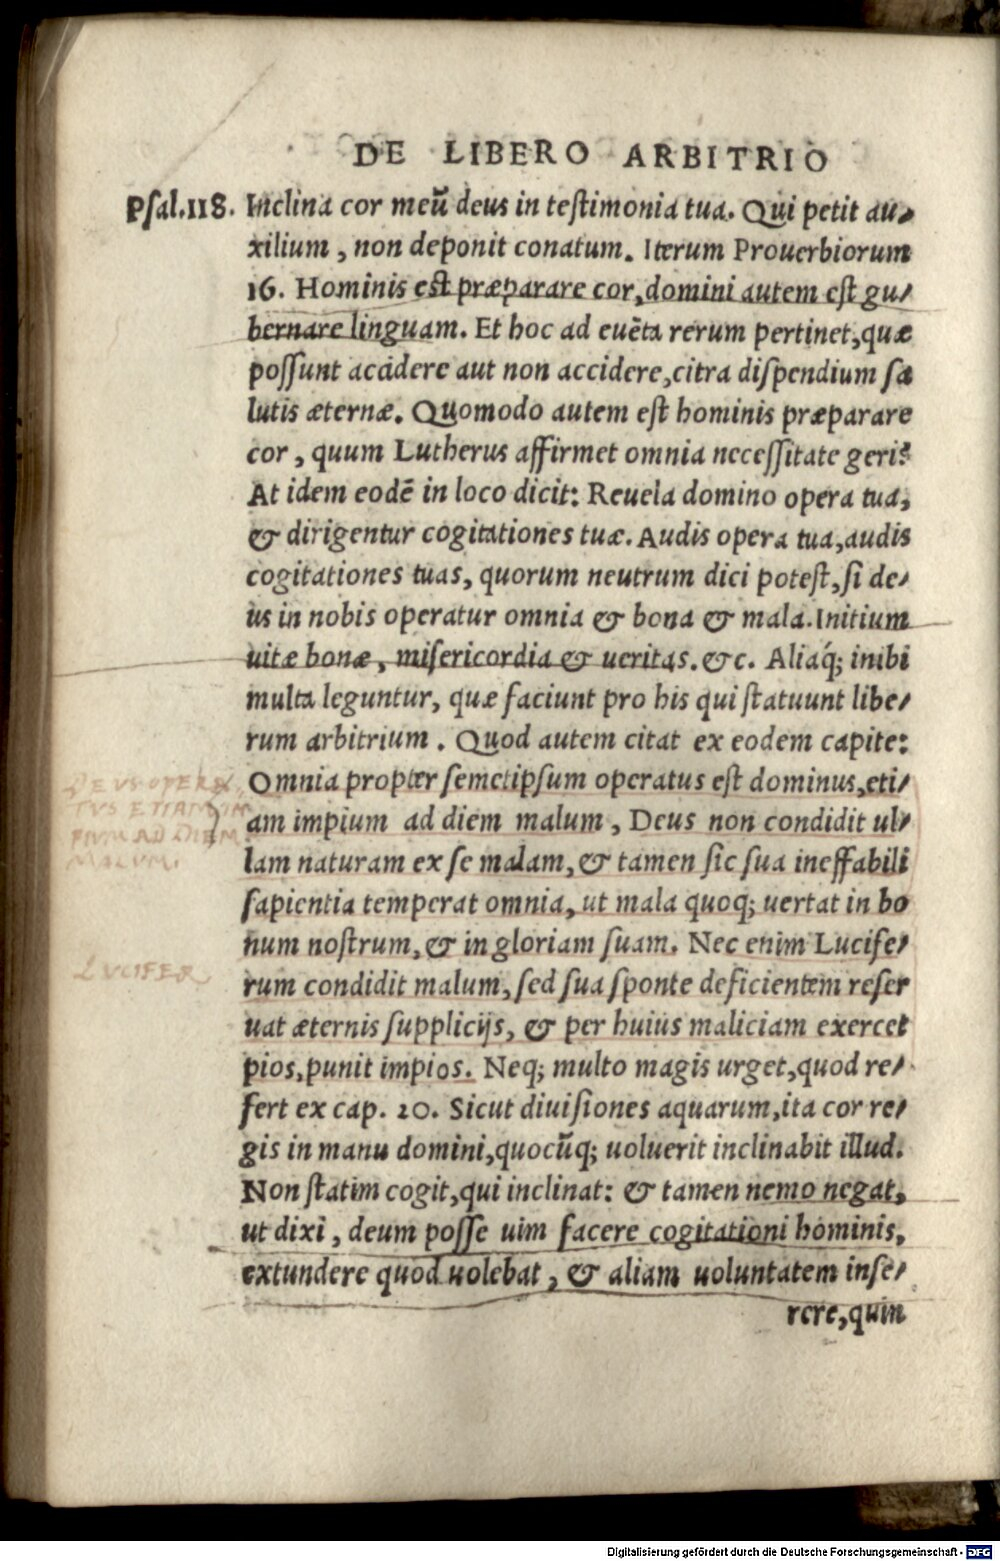 DE LIBERO ARBITRIO
Psal.118. Inclina cor meū deus in testimonia tua. Qui petit au-
xilium, non deponit conatum. Iterum Prouerbiorum
16. Hominis est præparare cor, domini autem est gu-
bernare linguam. Et hoc ad euēta rerum pertinet, quæ
possunt accidere aut non accidere, citra dispendium sa
lutis æternæ. Quomodo autem est hominis præparare
cor, quum Lutherus affirmet omnia necessitate geri?
At idem eodē in loco dicit: Reuela domino opera tua,
& dirigentur cogitationes tuæ. Audis opera tua, audis
cogitationes tuas, quorum neutrum dici potest, si de-
us in nobis operatur omnia & bona & mala. Initium
uitæ bonæ, misericordia & ueritas. &c. Aliaq́; inibi
multa leguntur, quæ faciunt pro his qui statuunt libe-
rum arbitrium. Quod autem citat ex eodem capite:
Omnia propter semetipsum operatus est dominus, eti-
am impium ad diem malum, Deus non condidit ul-
lam naturam ex se malam, & tamen sic sua ineffabili
sapientia temperat omnia, ut mala quoq; uertat in bo
num nostrum, & in gloriam suam. Nec enim Lucife-
rum condidit malum, sed sua sponte deficientem reser
uat æternis supplicijs, & per huius maliciam exercet
pios, punit impios. Neq; multo magis urget, quod re-
fert ex cap. 20. Sicut diuisiones aquarum, ita cor re-
gis in manu domini, quocūq; uoluerit inclinabit illud.
Non statim cogit, qui inclinat: & tamen nemo negat,
ut dixi, deum posse uim facere cogitationi hominis,
extundere quod uolebat, & aliam uoluntatem inse-
rere, quin
DEVS OPERA
TVS ETIAM IM
PIVM AD DIEM
MALVM.
LVCIFER
Digitalisierung gefördert durch die Deutsche Forschungsgemeinschaft - DFG